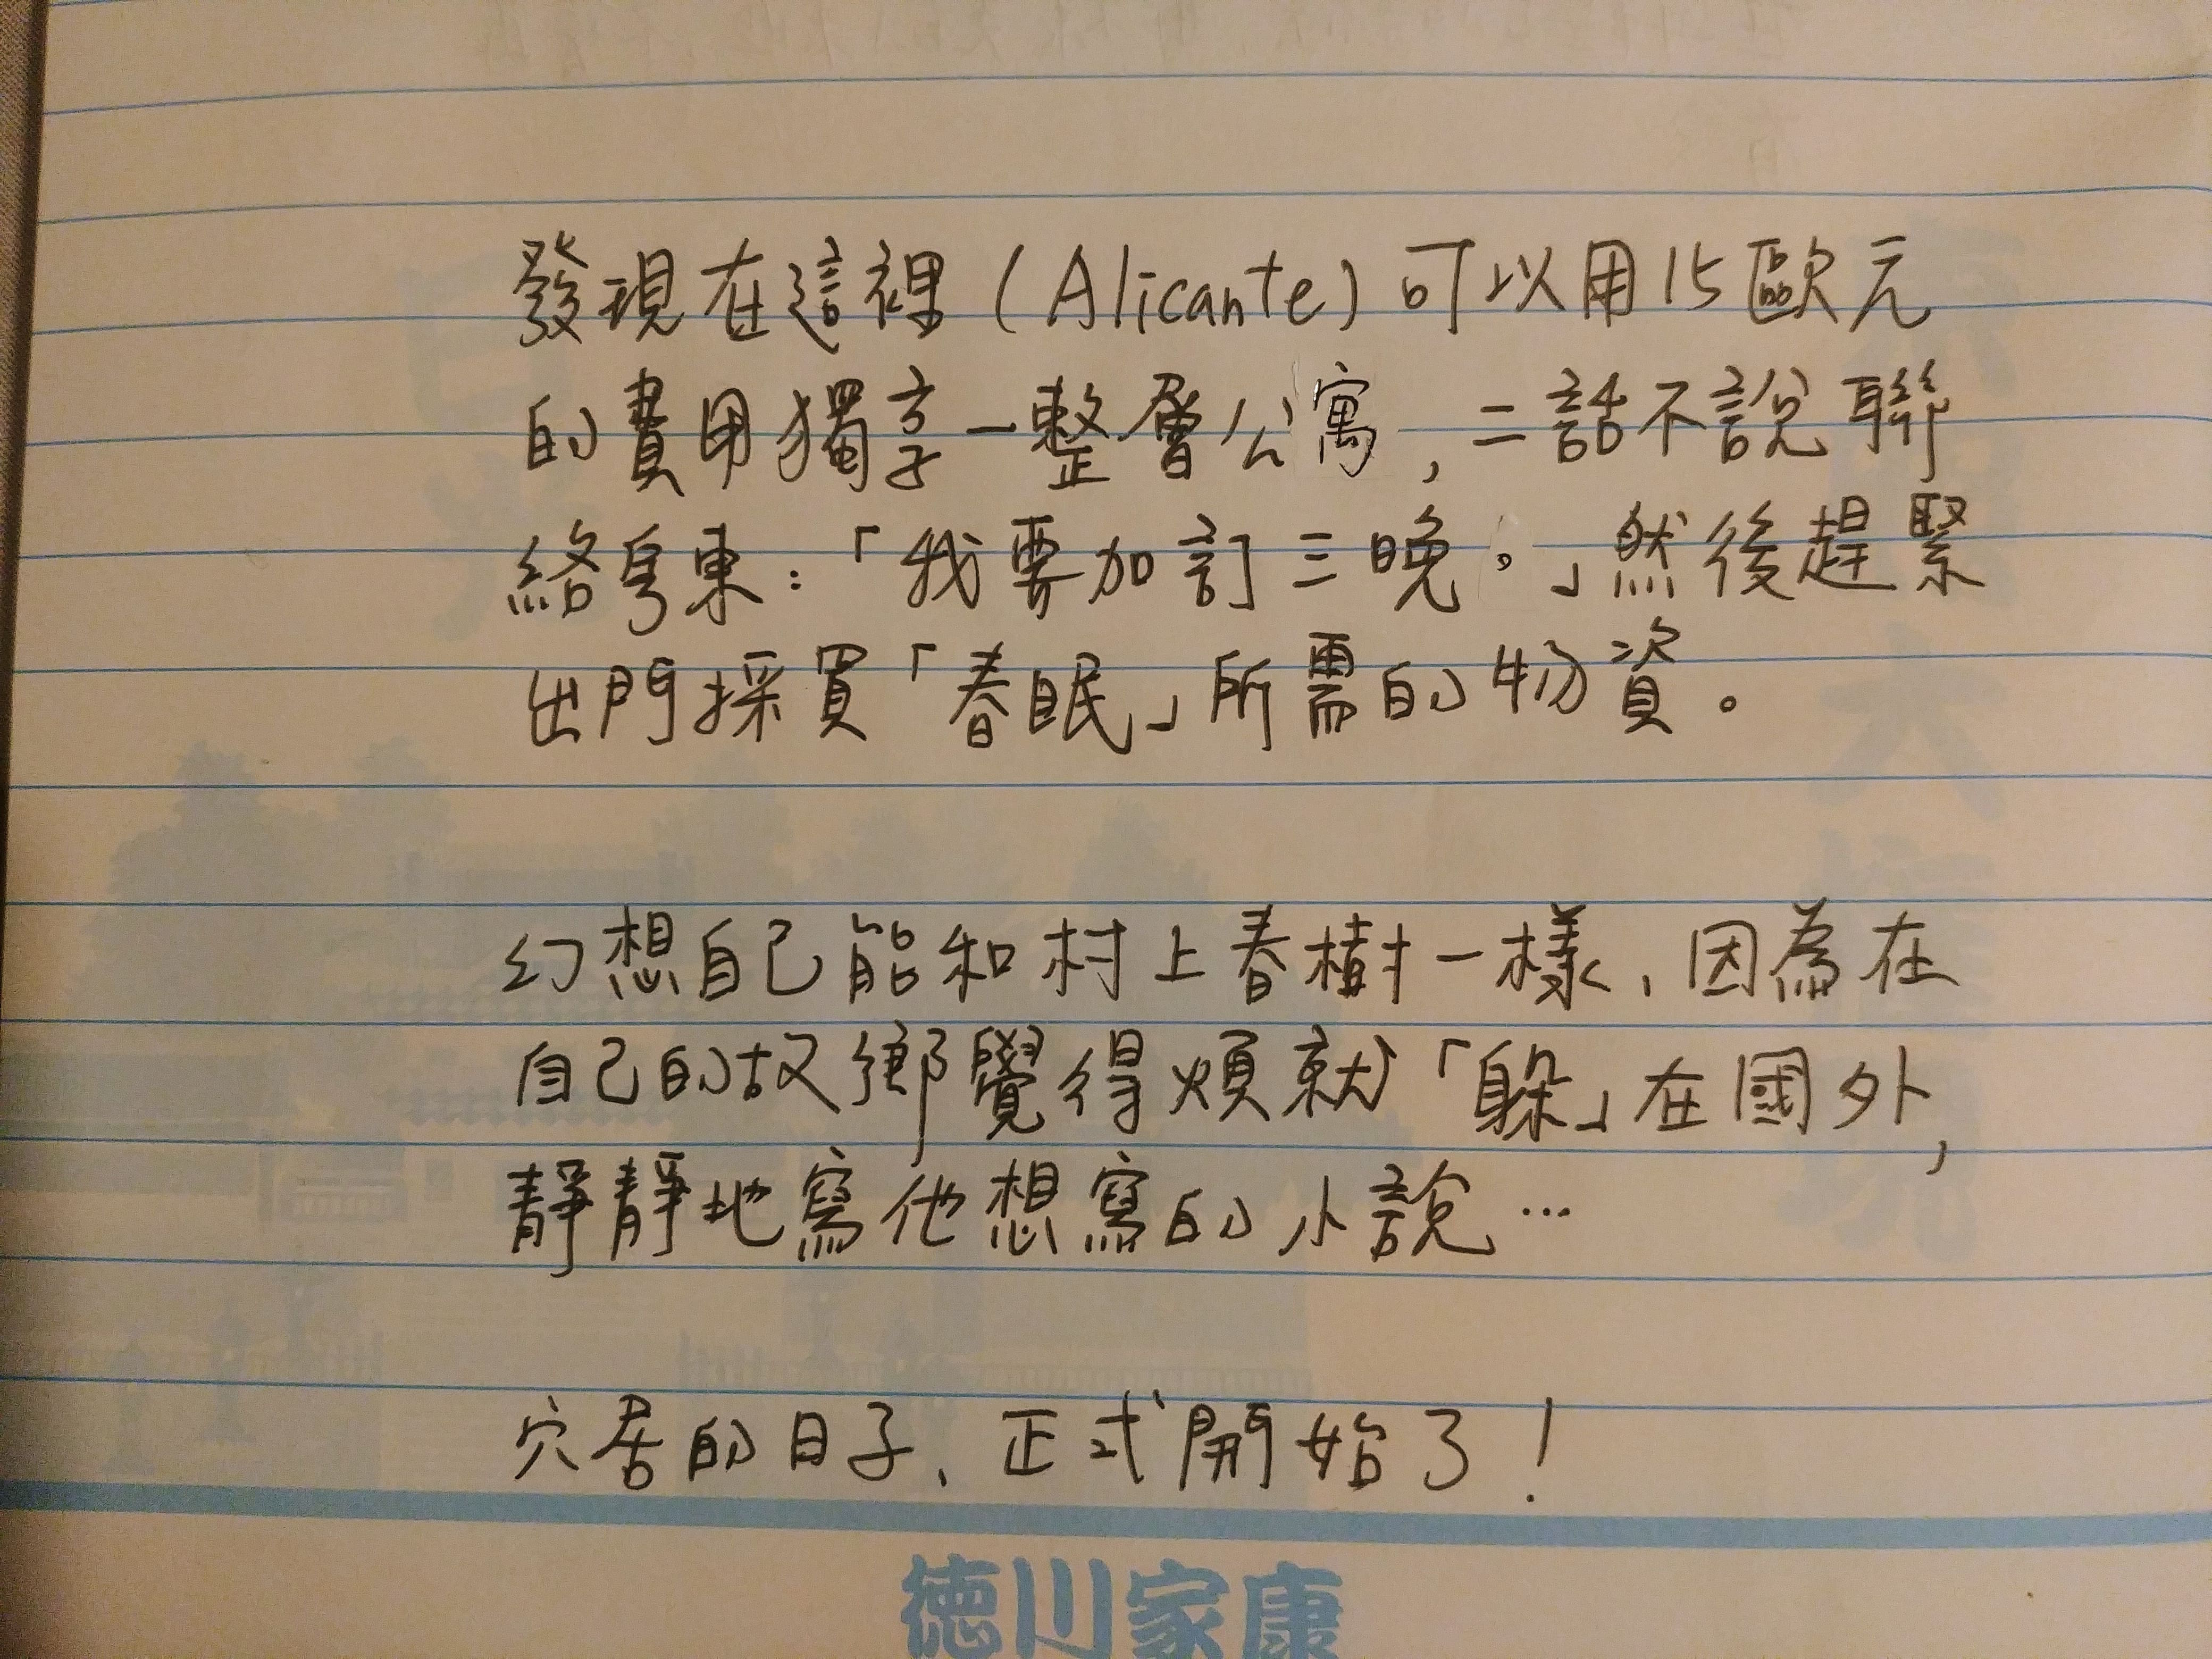 發現在這裡(Alicante)可以用15歐元
的費用獨享一整層公寓,二話不說聯
絡房東:「我要加訂三晚。」然後趕緊
出門採買「春眠」所需的物資。
幻想自己能和村上春樹一樣、因為在
自己的故鄉覺得煩就「躲」在國外,
靜靜地寫他想寫的小說…
穴居的日子、正式開始了!
徳川家康